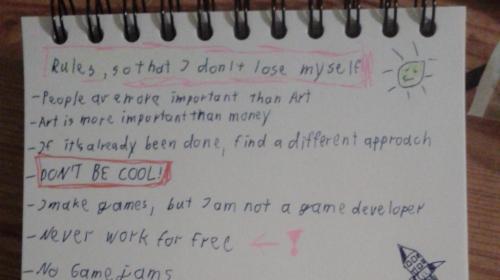 Rules, so that I don't lose myself
- People are more important than Art
- Art is more important than money
- If it's already been done, find a different approach
- DON'T BE COOL!
- I make games, but I am not a game developer
- Never work for free ← !
- No Game jams